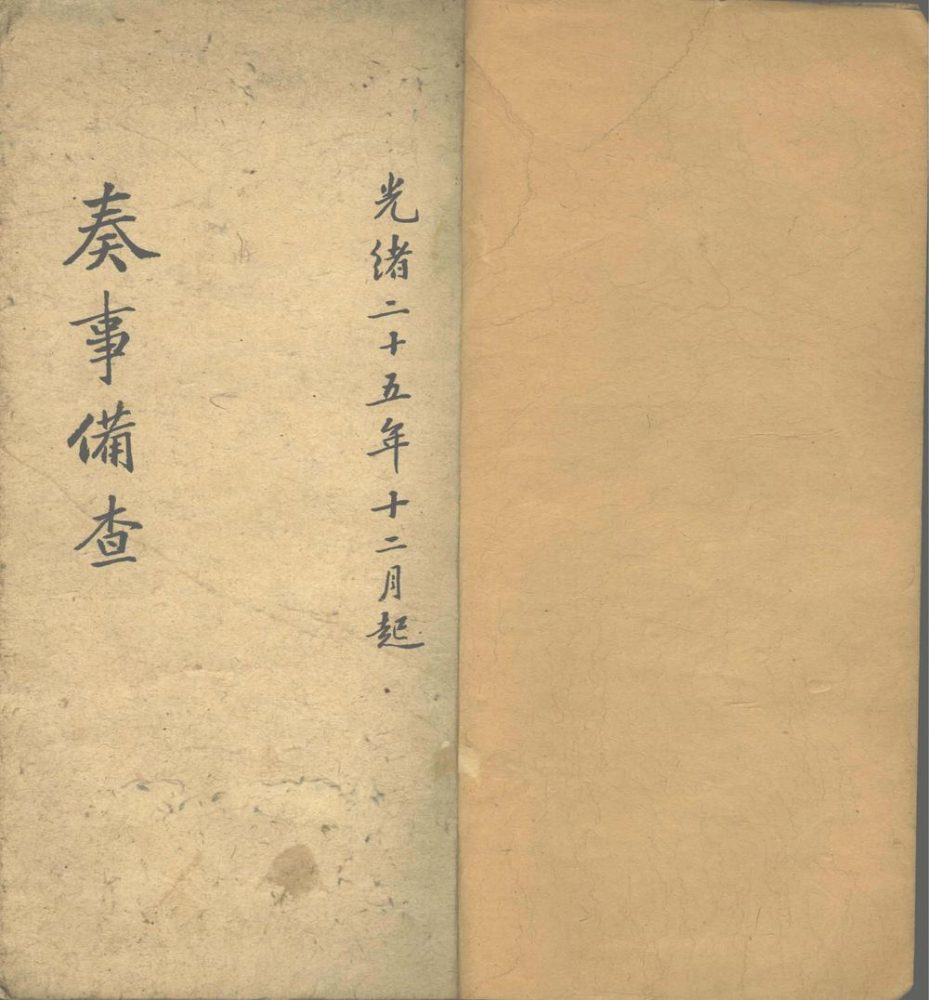 光緒二十五年十二月起
奏事備查